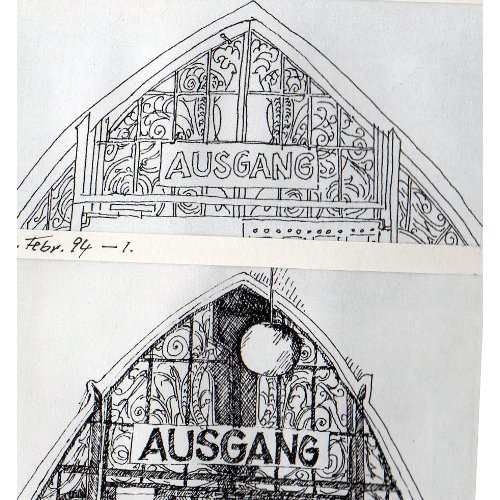 AUSGANG
Febr. 94 – 1.
AUSGANG